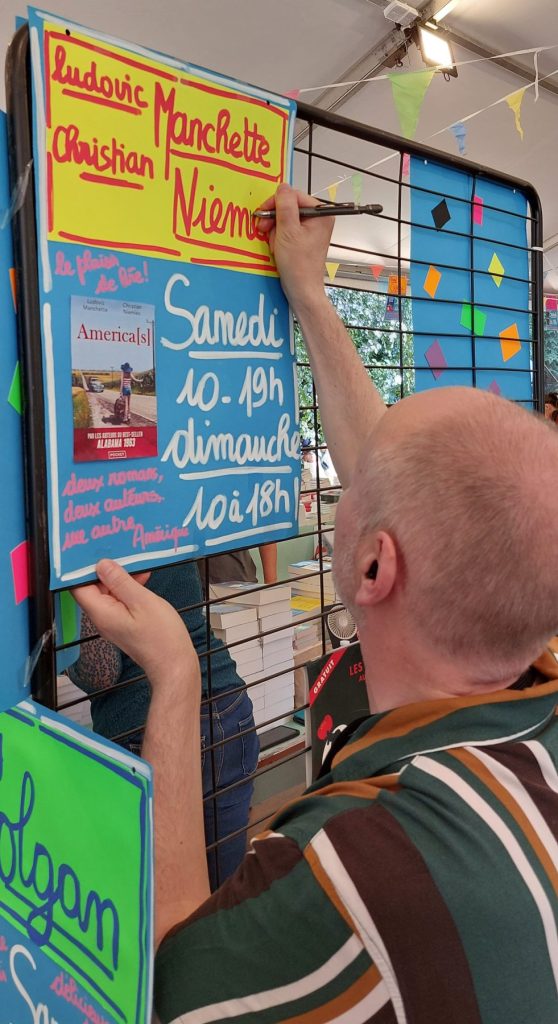 Ludovic Manchette
Christian
Niemie
le plaisir
de lire!
Ludovic Christian
Manchette Niemiec
America[s]
PAR LES AUTEURS DU BEST-SELLER
ALABAMA 1963
POCKET
Samedi
10-19h
dimanche
10 à 18h
deux romans,
deux auteurs.
une autre Amérique
GRATUIT
LES
olgan
Sa